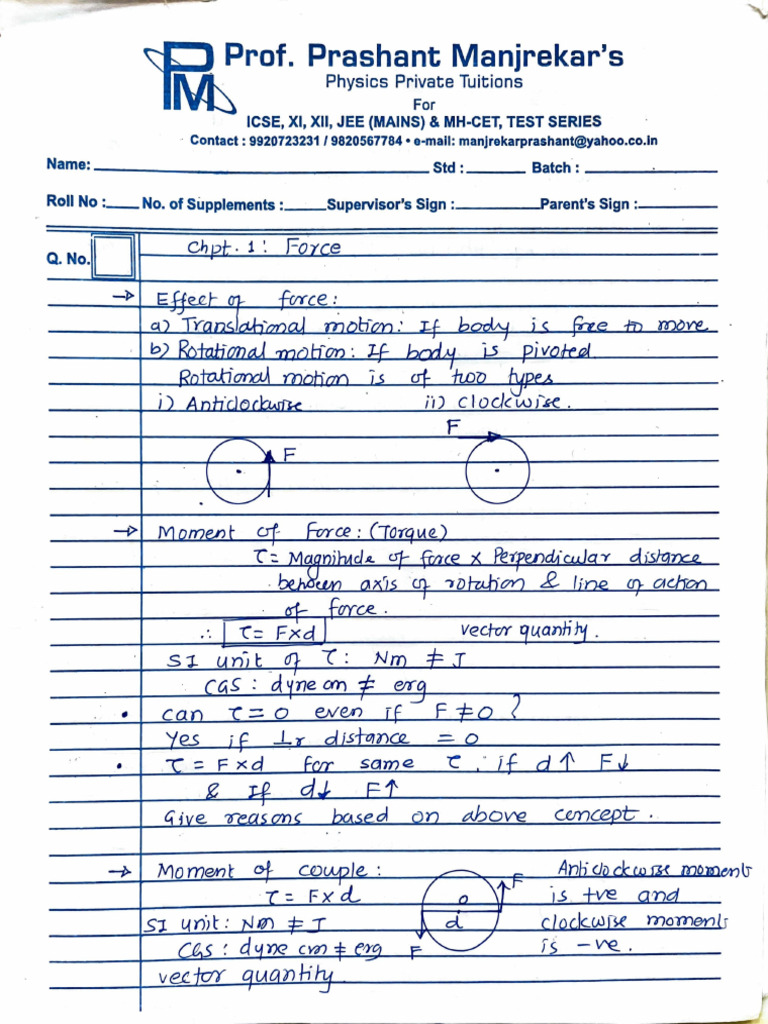 PM
Prof. Prashant Manjrekar's
Physics Private Tuitions
For
ICSE, XI, XII, JEE (MAINS) & MH-CET, TEST SERIES
Contact : 9920723231 / 9820567784 • e-mail: manjrekarprashant@yahoo.co.in
Name: Std : Batch :
Roll No : No. of Supplements : Supervisor's Sign : Parent's Sign :
Q. No.
Chpt. 1: Force
→ Effect of force:
a) Translational motion: If body is free to move
b) Rotational motion: If body is pivoted
Rotational motion is of two types
i) Anticlockwise ii) clockwise.
F
F
→ Moment of Force: (Torque)
τ = Magnitude of force × Perpendicular distance
between axis of rotation & line of action
of force.
∴ τ = F×d vector quantity.
SI unit of τ: Nm ≠ J
CGS: dyne cm ≠ erg
• can τ = 0 even if F ≠ 0 ?
Yes if ⊥r distance = 0
• τ = F×d for same τ. if d↑ F↓
& If d↓ F↑
Give reasons based on above concept.
→ Moment of couple:
τ = F×d
SI unit: Nm ≠ J
CGS: dyne cm ≠ erg
vector quantity
F
O
d
F
Anticlockwise moment
is +ve and
clockwise moments
is -ve.